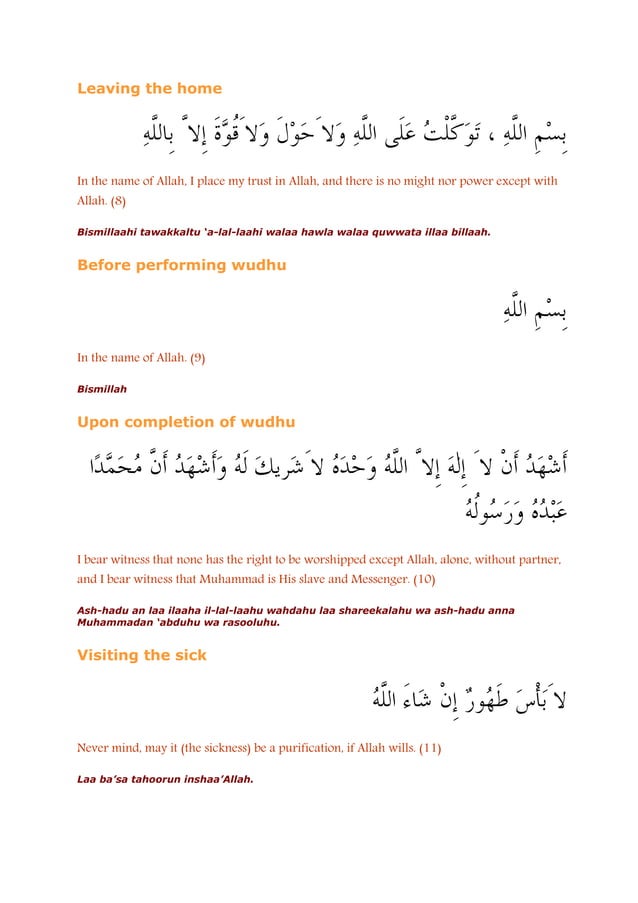 Leaving the home
بِسْمِ اللَّهِ ، تَوَكَّلْتُ عَلَى اللَّهِ وَلاَ حَوْلَ وَلاَ قُوَّةَ إِلاَّ بِاللَّهِ
In the name of Allah, I place my trust in Allah, and there is no might nor power except with
Allah. (8)
Bismillaahi tawakkaltu ‘a-lal-laahi walaa hawla walaa quwwata illaa billaah.
Before performing wudhu
بِسْمِ اللَّهِ
In the name of Allah. (9)
Bismillah
Upon completion of wudhu
أَشْهَدُ أَنْ لاَ إِلٰهَ إِلاَّ اللَّهُ وَحْدَهُ لاَ شَرِيكَ لَهُ وَأَشْهَدُ أَنَّ مُحَمَّدًا
عَبْدُهُ وَرَسُولُهُ
I bear witness that none has the right to be worshipped except Allah, alone, without partner,
and I bear witness that Muhammad is His slave and Messenger. (10)
Ash-hadu an laa ilaaha il-lal-laahu wahdahu laa shareekalahu wa ash-hadu anna
Muhammadan ‘abduhu wa rasooluhu.
Visiting the sick
لاَ بَأْسَ طَهُورٌ إِنْ شَاءَ اللَّهُ
Never mind, may it (the sickness) be a purification, if Allah wills. (11)
Laa ba’sa tahoorun inshaa’Allah.